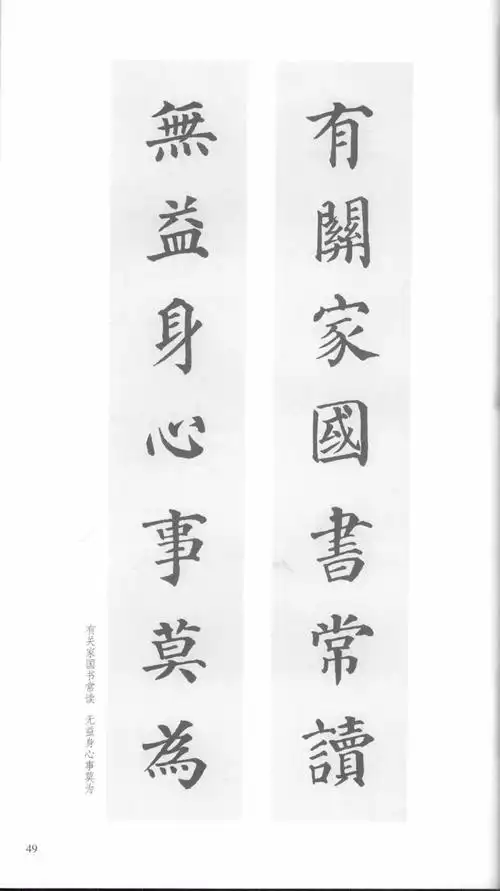 有關家國書常讀
無益身心事莫為
有关家国书常读 无益身心事莫为
49